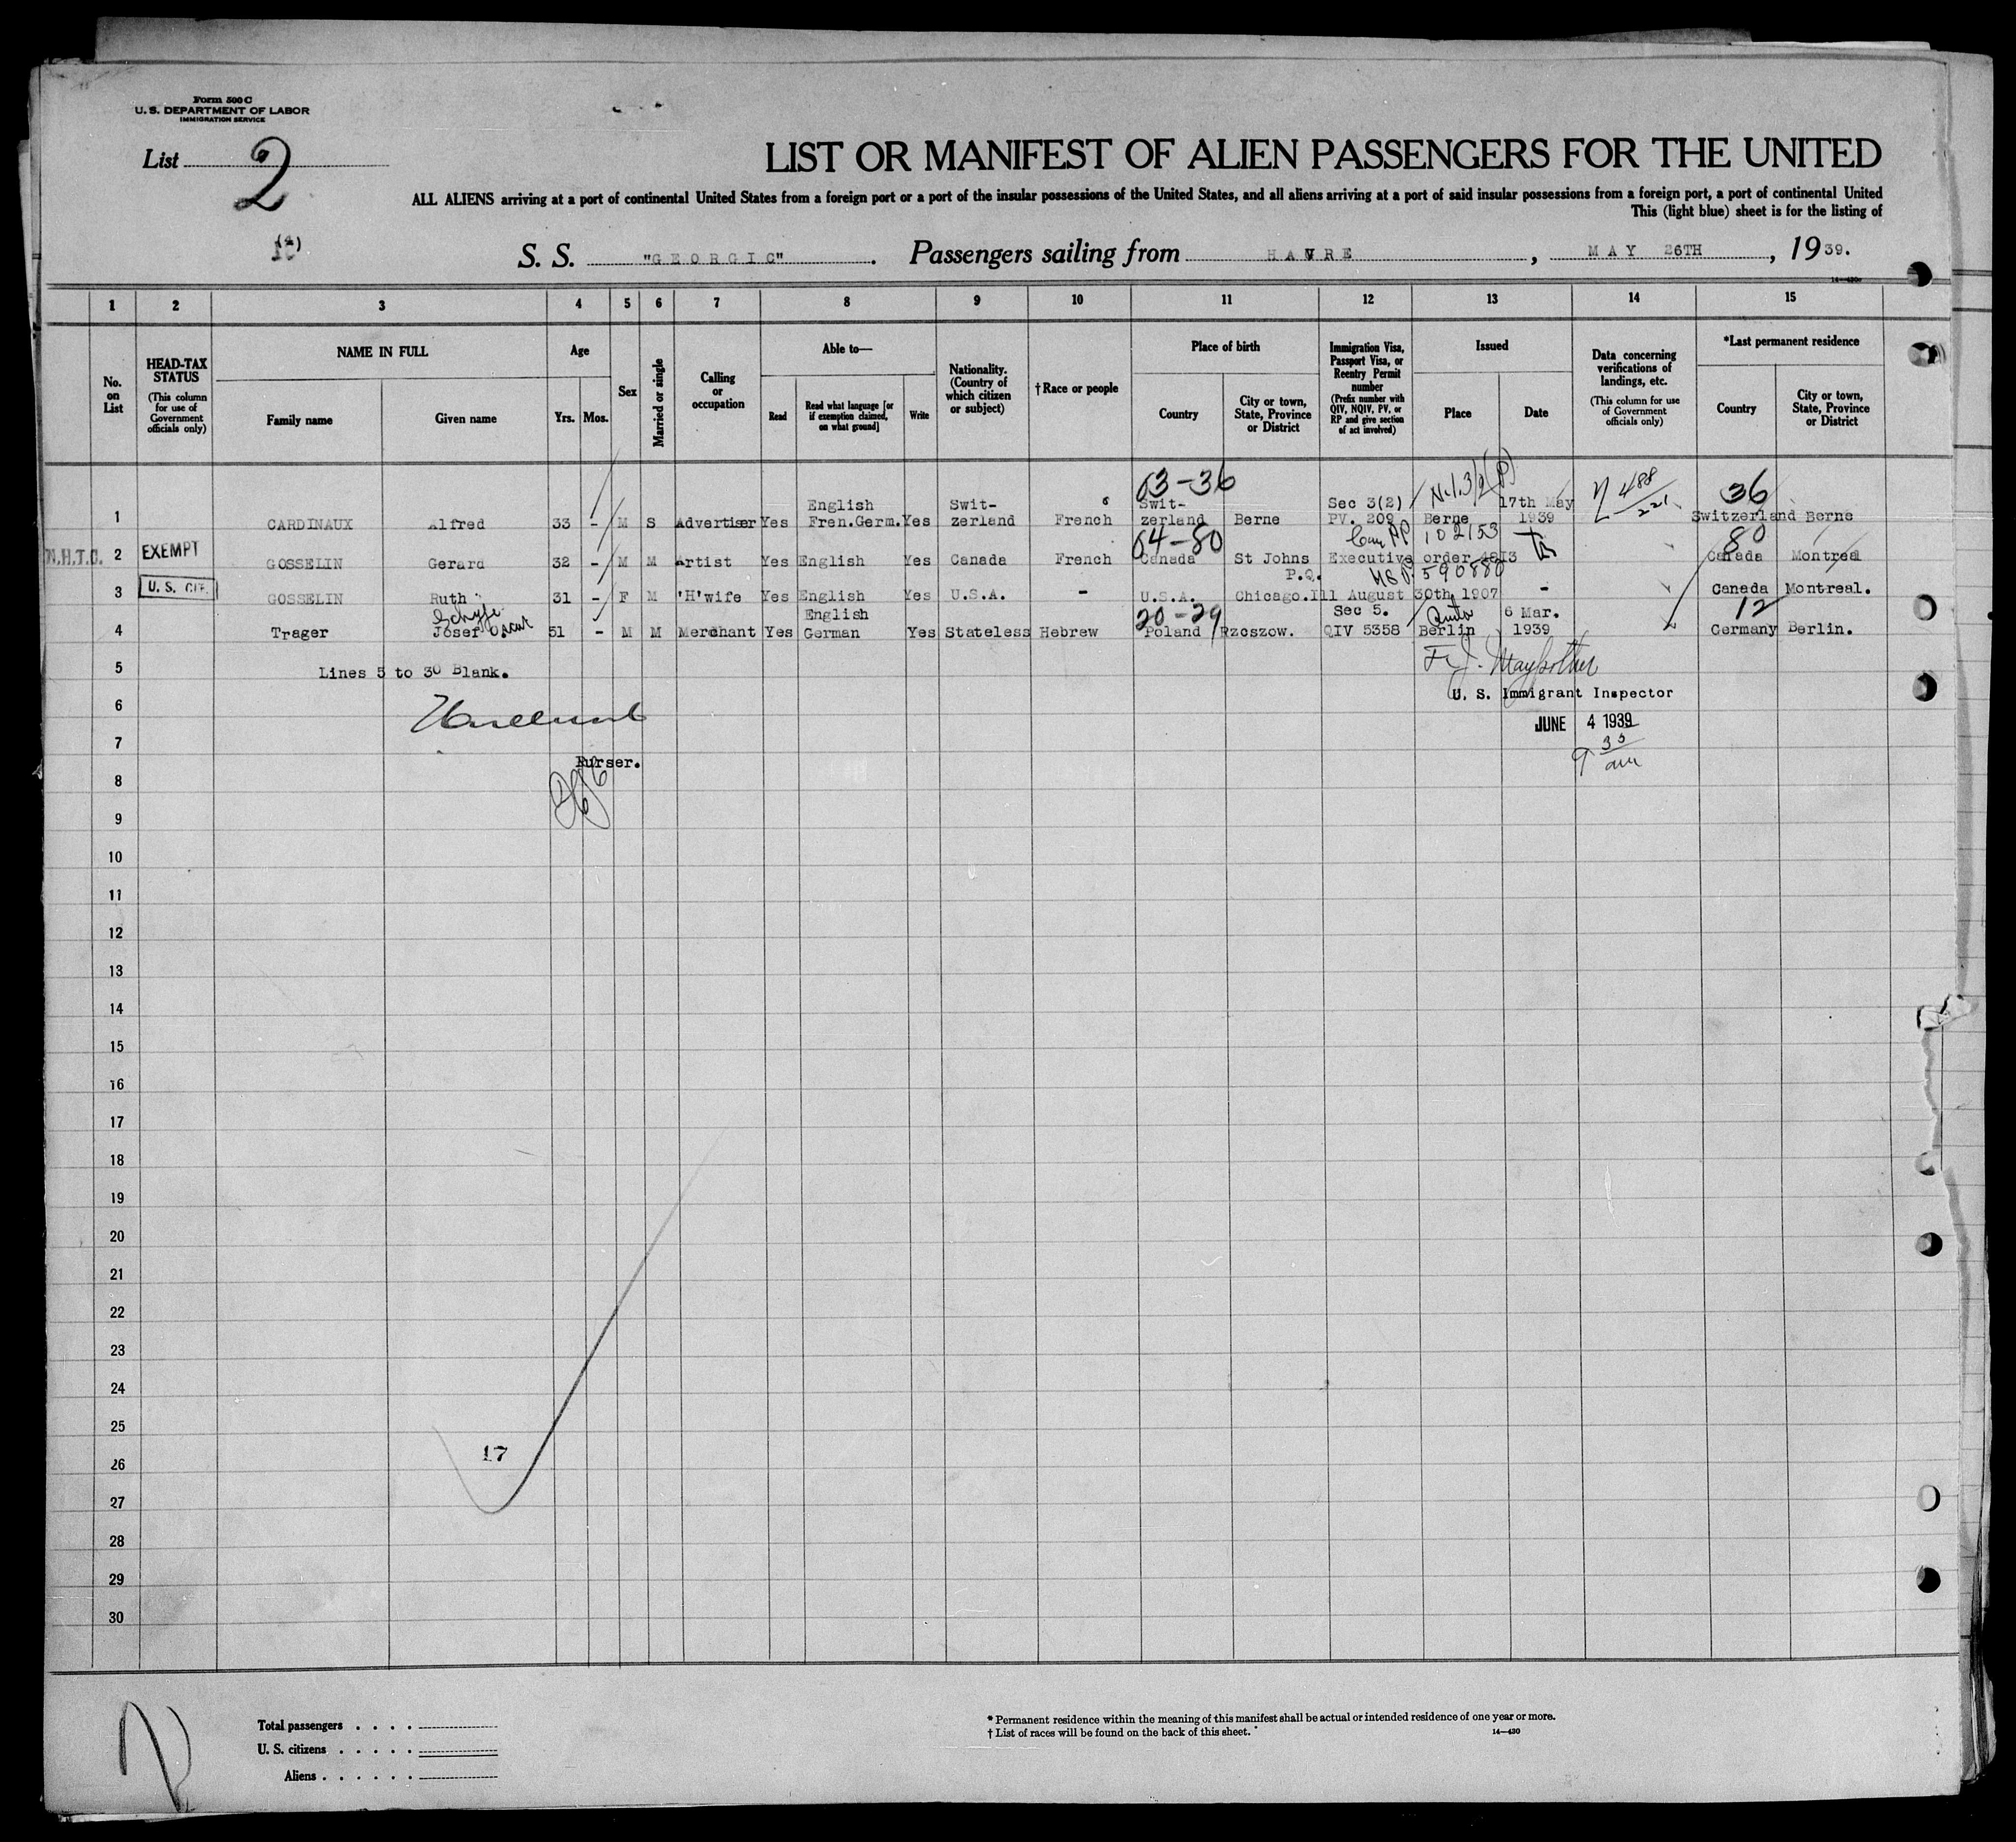 Form 500 C
U. S. DEPARTMENT OF LABOR
IMMIGRATION SERVICE
List 2
LIST OR MANIFEST OF ALIEN PASSENGERS FOR THE UNITED
ALL ALIENS arriving at a port of continental United States from a foreign port or a port of the insular possessions of the United States, and all aliens arriving at a port of said insular possessions from a foreign port, a port of continental United
This (light blue) sheet is for the listing of
S. S. "GEORGIC". Passengers sailing from HAVRE, MAY 26TH, 1939.
14—430
1 2 3 4 5 6 7 8 9 10 11 12 13 14 15
No. on List
HEAD-TAX STATUS (This column for use of Government officials only)
NAME IN FULL
Family name Given name
Age
Yrs. Mos.
Sex
Married or single
Calling or occupation
Able to—
Read Read what language [or if exemption claimed, on what ground] Write
Nationality. (Country of which citizen or subject)
†Race or people
Place of birth
Country City or town, State, Province or District
Immigration Visa, Passport Visa, or Reentry Permit number (Prefix number with QIV, NQIV, PV, or RP and give section of act involved)
Issued
Place Date
Data concerning verifications of landings, etc. (This column for use of Government officials only)
*Last permanent residence
Country City or town, State, Province or District
03-36 36
English Swit- Swit- Sec 3(2) 17th May
1 CARDINAUX Alfred 33 - M S Advertiser Yes Fren.Germ. Yes zerland French zerland Berne PV. 209 Berne 1939 Switzerland Berne
04-80 Can PP 102153 80
N.H.T.C. 2 EXEMPT GOSSELIN Gerard 32 - M M Artist Yes English Yes Canada French Canada St Johns Executive order 4813 Canada Montreal
P.Q. 590880
3 U. S. CIT. GOSSELIN Ruth 31 - F M 'H'wife Yes English Yes U.S.A. - U.S.A. Chicago.Ill August 30th 1907 - Canada Montreal.
English 20-29 Sec 5. Quota 6 Mar. 12
4 Trager Josef Oscar 51 - M M Merchant Yes German Yes Stateless Hebrew Poland Rzeszow. QIV 5358 Berlin 1939 Germany Berlin.
5 Lines 5 to 30 Blank.
U. S. Immigrant Inspector
6
JUNE 4 1939
7
9 35 am
Purser.
8
9
10
11
12
13
14
15
16
17
18
19
20
21
22
23
24
25
17
26
27
28
29
30
Total passengers . . . .
U. S. citizens . . . . .
Aliens . . . . . .
* Permanent residence within the meaning of this manifest shall be actual or intended residence of one year or more.
† List of races will be found on the back of this sheet.
14—430